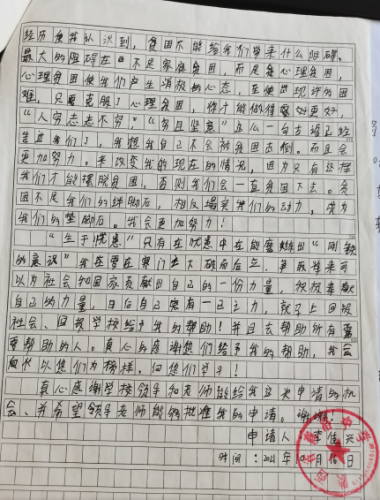 经历使我认识到，贫困不能给我们带来什么阻碍。
最大的阻碍在不是家庭贫困，而是是心理贫困，
心理贫困使我们产生消极的心态，至使出现诈贫困
难，只要克服了心理贫困，你才能做得更好更好，
"人穷志志不穷"，"穷且坚意"这么一句古语已经
告直我们了，我想我自己不会被贫困击倒。而且会
更加努力。来改变我的现在的情况，因为只有这样
我们才能摆脱贫困，否则我们会一直贫困下去。贫
困不是我们的绊脚石，相反塌实我们的动力，成为
我们的垫脚石。我会更加努力！
"生于忧患"只有在忧患中在能磨出"刚毅
的意识"我还要在寒门立下破而后立，争取将来可
以为社会和国家贡献出自己的一份力量，
自己的力量，日后自己定有一己之力，就字上回报
社会、回报学校给予我的帮助！并且去帮助所有需
要帮助的人。真心的感谢您们给予我的帮助，我会
以您们为榜样，向您们学习！
真心感谢学校领导和老师给我这次申请的机
会、并希望领导老师能够批准我的申请。谢谢！
申请人：李佳兴
时间：2021年10月18日